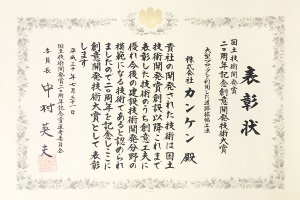 表彰状
国土技術開発賞
二十周年記念創意開発技術大賞
株式会社カンケン殿
貴社の開発された技術は国土
技術開発賞創設以降これまで
表彰した技術のうち創意工夫に
優れ今後の建設技術開発分野の
模範になる技術であると認められ
ましたので二十周年を記念しここに
創意開発技術大賞として表彰
します
国土技術開発賞二十周年記念賞選考委員会
委員長 中村英夫